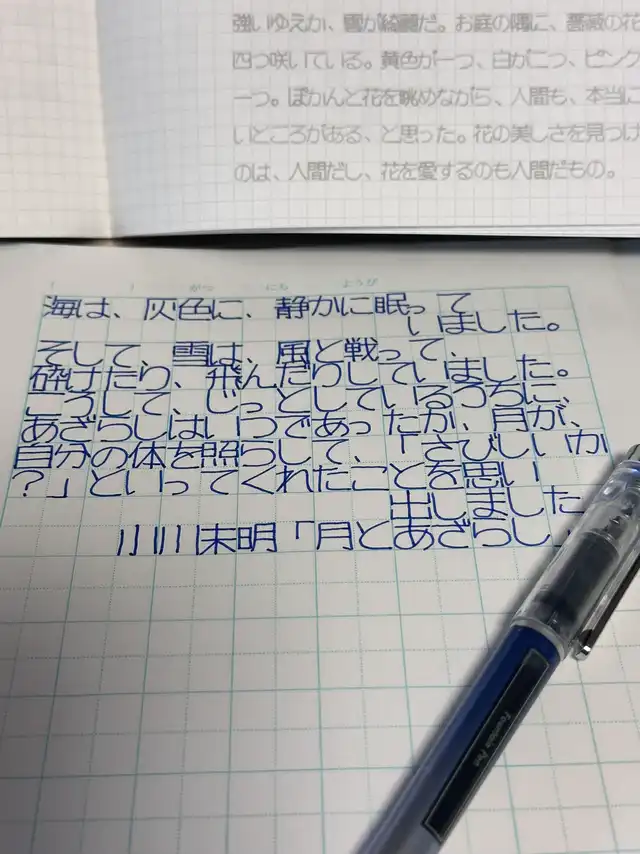 強いゆえか、雲が綺麗だ。お庭の隅に、薔薇の花
四つ咲いている。黄色が一つ、白が二つ、ピンク
一つ。ぽかんと花を眺めながら、人間も、本当に
いところがある、と思った。花の美しさを見つけ
のは、人間だし、花を愛するのも人間だもの。
がつ にち ようび
海は、灰色に、静かに眠って
いました。
そして、雪は、風と戦って、
砕けたり、飛んだりしていました。
こうして、じっとしているうちに、
あざらしはいつであったか、月が、
自分の体を照らして、「さびしいか
?」といってくれたことを思い
出しました
小川未明「月とあざらし」
Fountain Pen